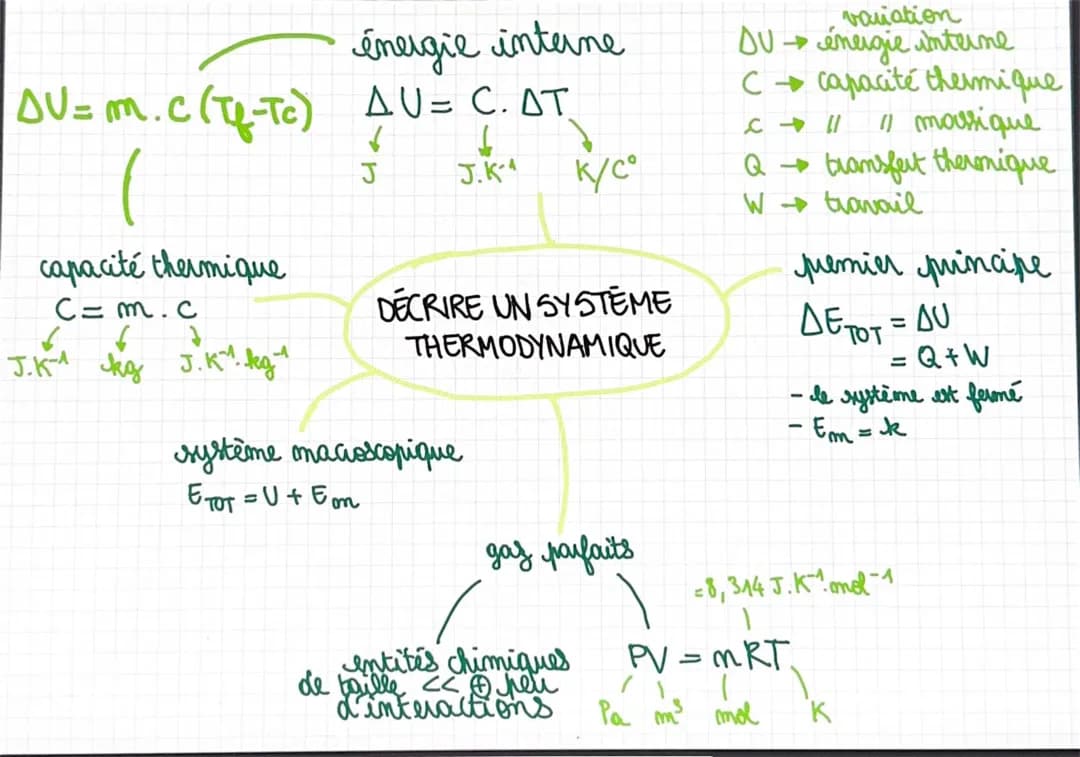 énergie interne
ΔU = C. ΔT
J
J.K⁻¹
K/C°
ΔU = m.c (Tf-Tc)
variation
ΔU → énergie interne
C → capacité thermique
c → " " massique
Q → transfert thermique
W → travail
capacité thermique
C = m . c
J.K⁻¹
kg
J.K⁻¹.kg⁻¹
DÉCRIRE UN SYSTÈME
THERMODYNAMIQUE
premier principe
ΔE TOT = ΔU
= Q + W
- le système est fermé
- Em = k
système macroscopique
E TOT = U + Em
gaz parfaits
entités chimiques
de taille << ⊕ peu
d'interactions
= 8,314 J.K⁻¹.mol⁻¹
PV = nRT
Pa
m³
mol
K